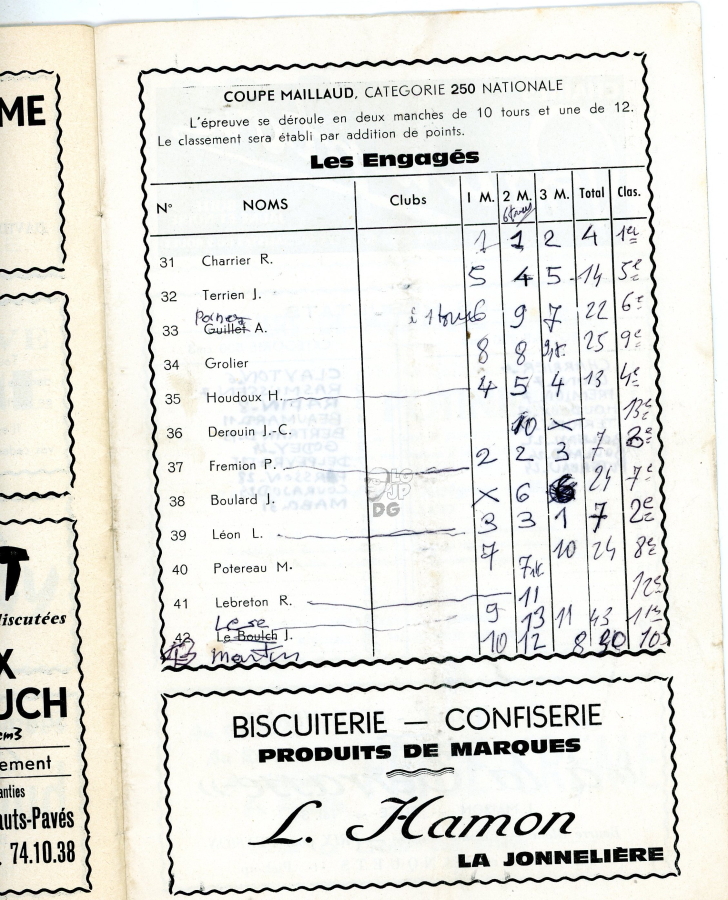 COUPE MAILLAUD, CATEGORIE 250 NATIONALE
L'épreuve se déroule en deux manches de 10 tours et une de 12.
Le classement sera établi par addition de points.
Les Engagés
N° NOMS Clubs 1 M. 2 M. 3 M. Total Clas.
31 Charrier R. 1 1 2 4 1er
32 Terrien J. 5 4 5 14 5e
33 Guillet A. à 1 tour 6 9 7 22 6e
34 Grolier 8 8 25 9e
35 Houdoux H. 4 5 4 13 4e
36 Derouin J.-C. 10 X 13e
37 Fremion P. 2 2 3 7
38 Boulard J. X 6 21 7e
39 Léon L. 3 3 1 7 2e
40 Potereau M. 7 10 24 8e
41 Lebreton R. 11 12e
Lese
42 Le Boulch J. 9 13 11 43 11e
43 Martin 10 12 8 10e
BISCUITERIE — CONFISERIE
PRODUITS DE MARQUES
L. Hamon
LA JONNELIÈRE
ME
T
discutées
X
UCH
cm3
ement
anties
auts-Pavés
. 74.10.38
LG
JP
DG